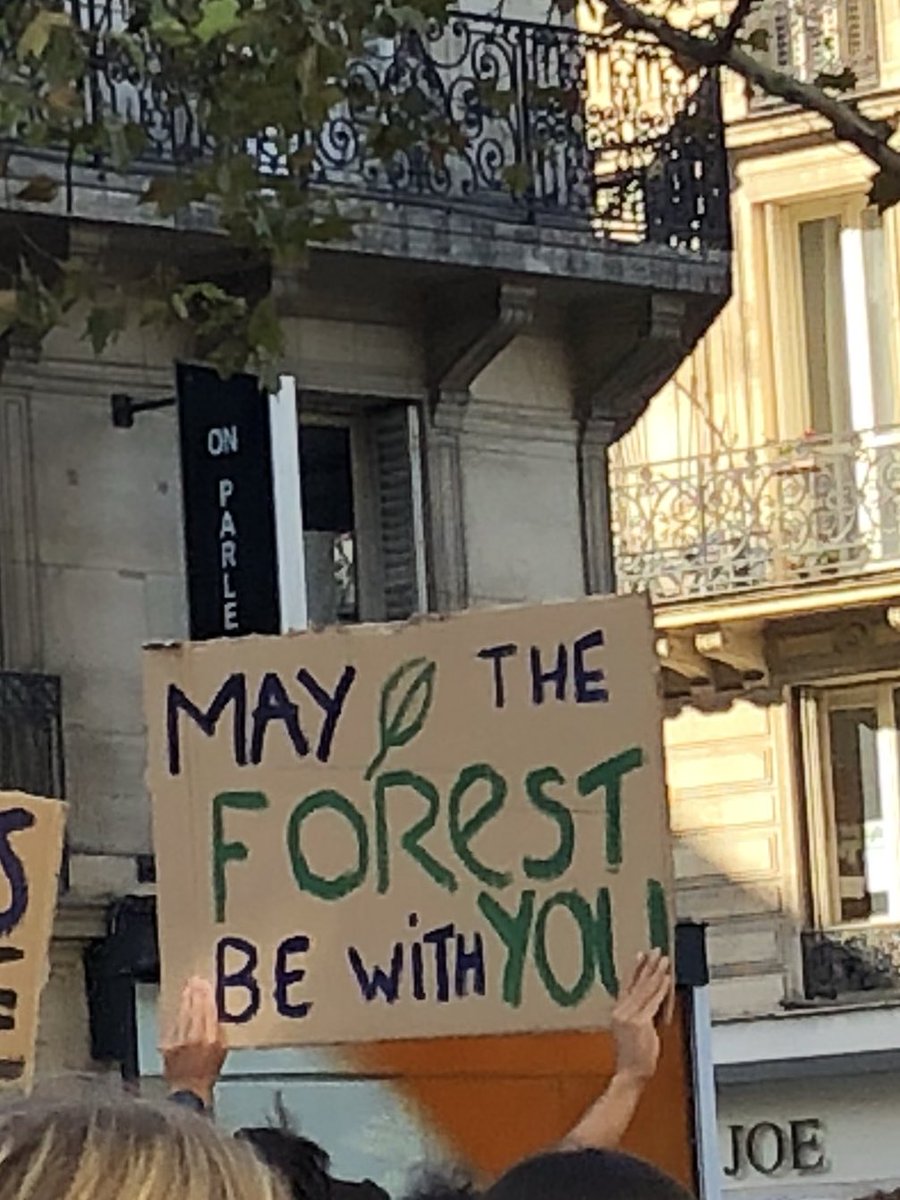 ON PARLE
MAY THE
FOResT
BE WiTH YOU
JOE